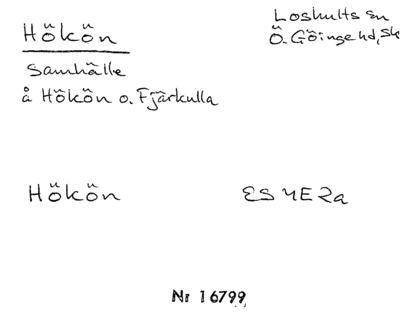 Hökön
Loshults sn
Ö. Göinge hd, Sk
Samhälle
å Hökön o. Fjärkulla
Hökön
ES 4E2a
Nr 16799